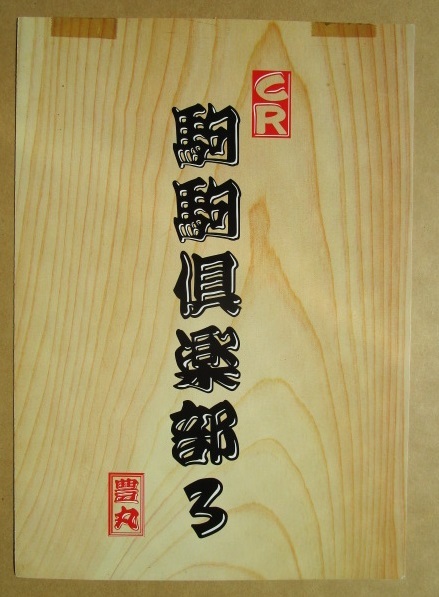 CR
駒駒倶楽部3
豊丸